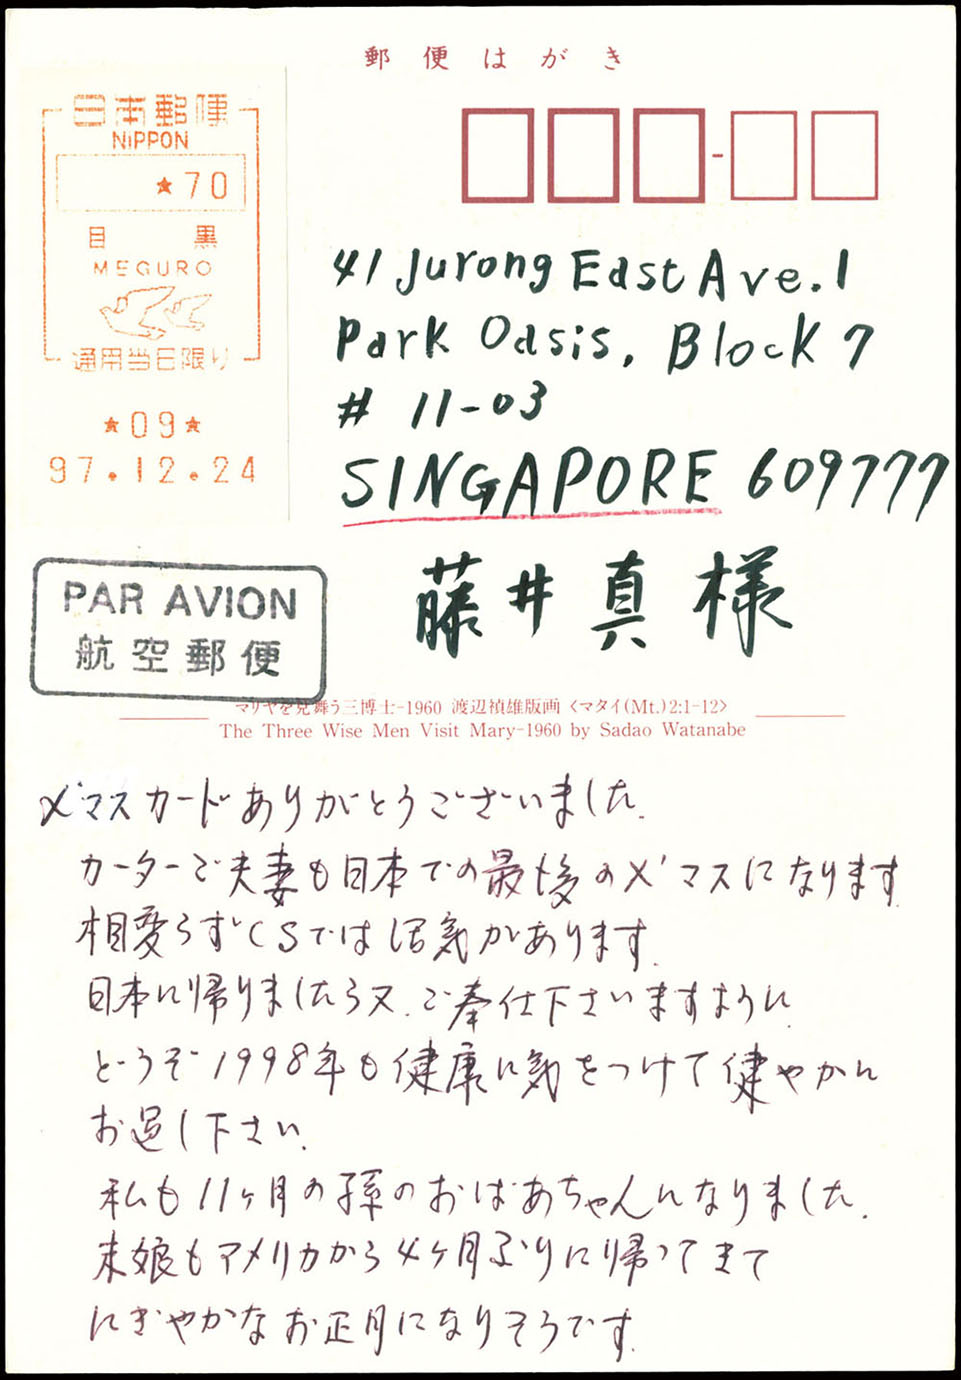 郵便はがき
日本郵便
NIPPON
★70
目 黒
MEGURO
通用当日限り
★09★
97.12.24
41 Jurong East Ave. 1
Park Oasis, Block 7
# 11-03
SINGAPORE 609777
藤井真様
PAR AVION
航空郵便
マリヤを見舞う三博士-1960 渡辺禎雄版画 〈マタイ(Mt.)2:1-12〉
The Three Wise Men Visit Mary-1960 by Sadao Watanabe
X'マスカードありがとうございました.
カーターご夫妻も日本での最後のX'マスになります.
相変らずCSでは活気があります.
日本に帰りましたら又.ご奉仕下さいますように.
どうぞ1998年も健康に気をつけて健やかに
お過し下さい.
私も11ヶ月の孫のおばあちゃんになりました.
末娘もアメリカから4ヶ月ぶりに帰ってきて
にぎやかなお正月になりそうです.